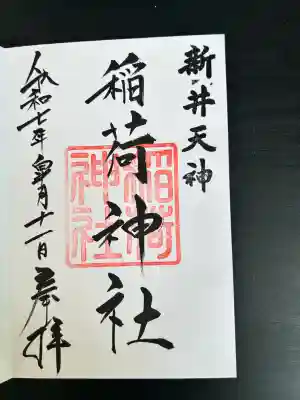 新井天神
稲荷神社
稲荷
神社
令和七年皐月十一日奉拝